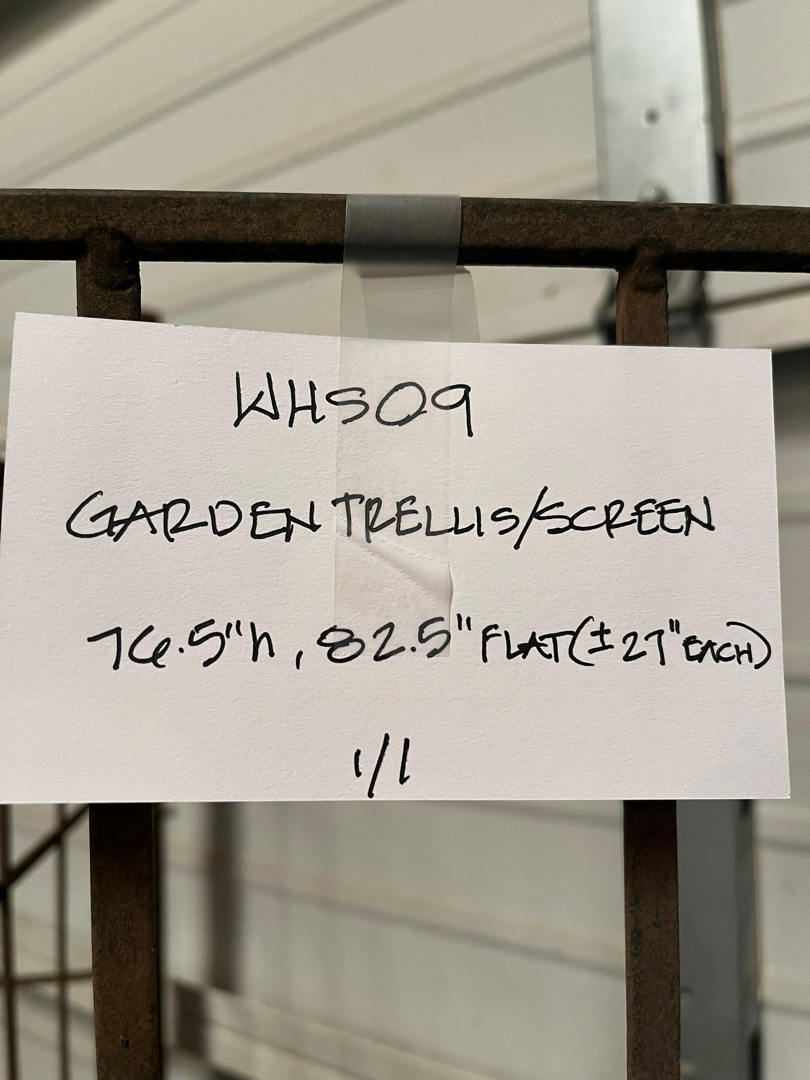 WHS09
GARDEN TRELLIS/SCREEN
76.5"h, 82.5" FLAT (±27" EACH)
1/1